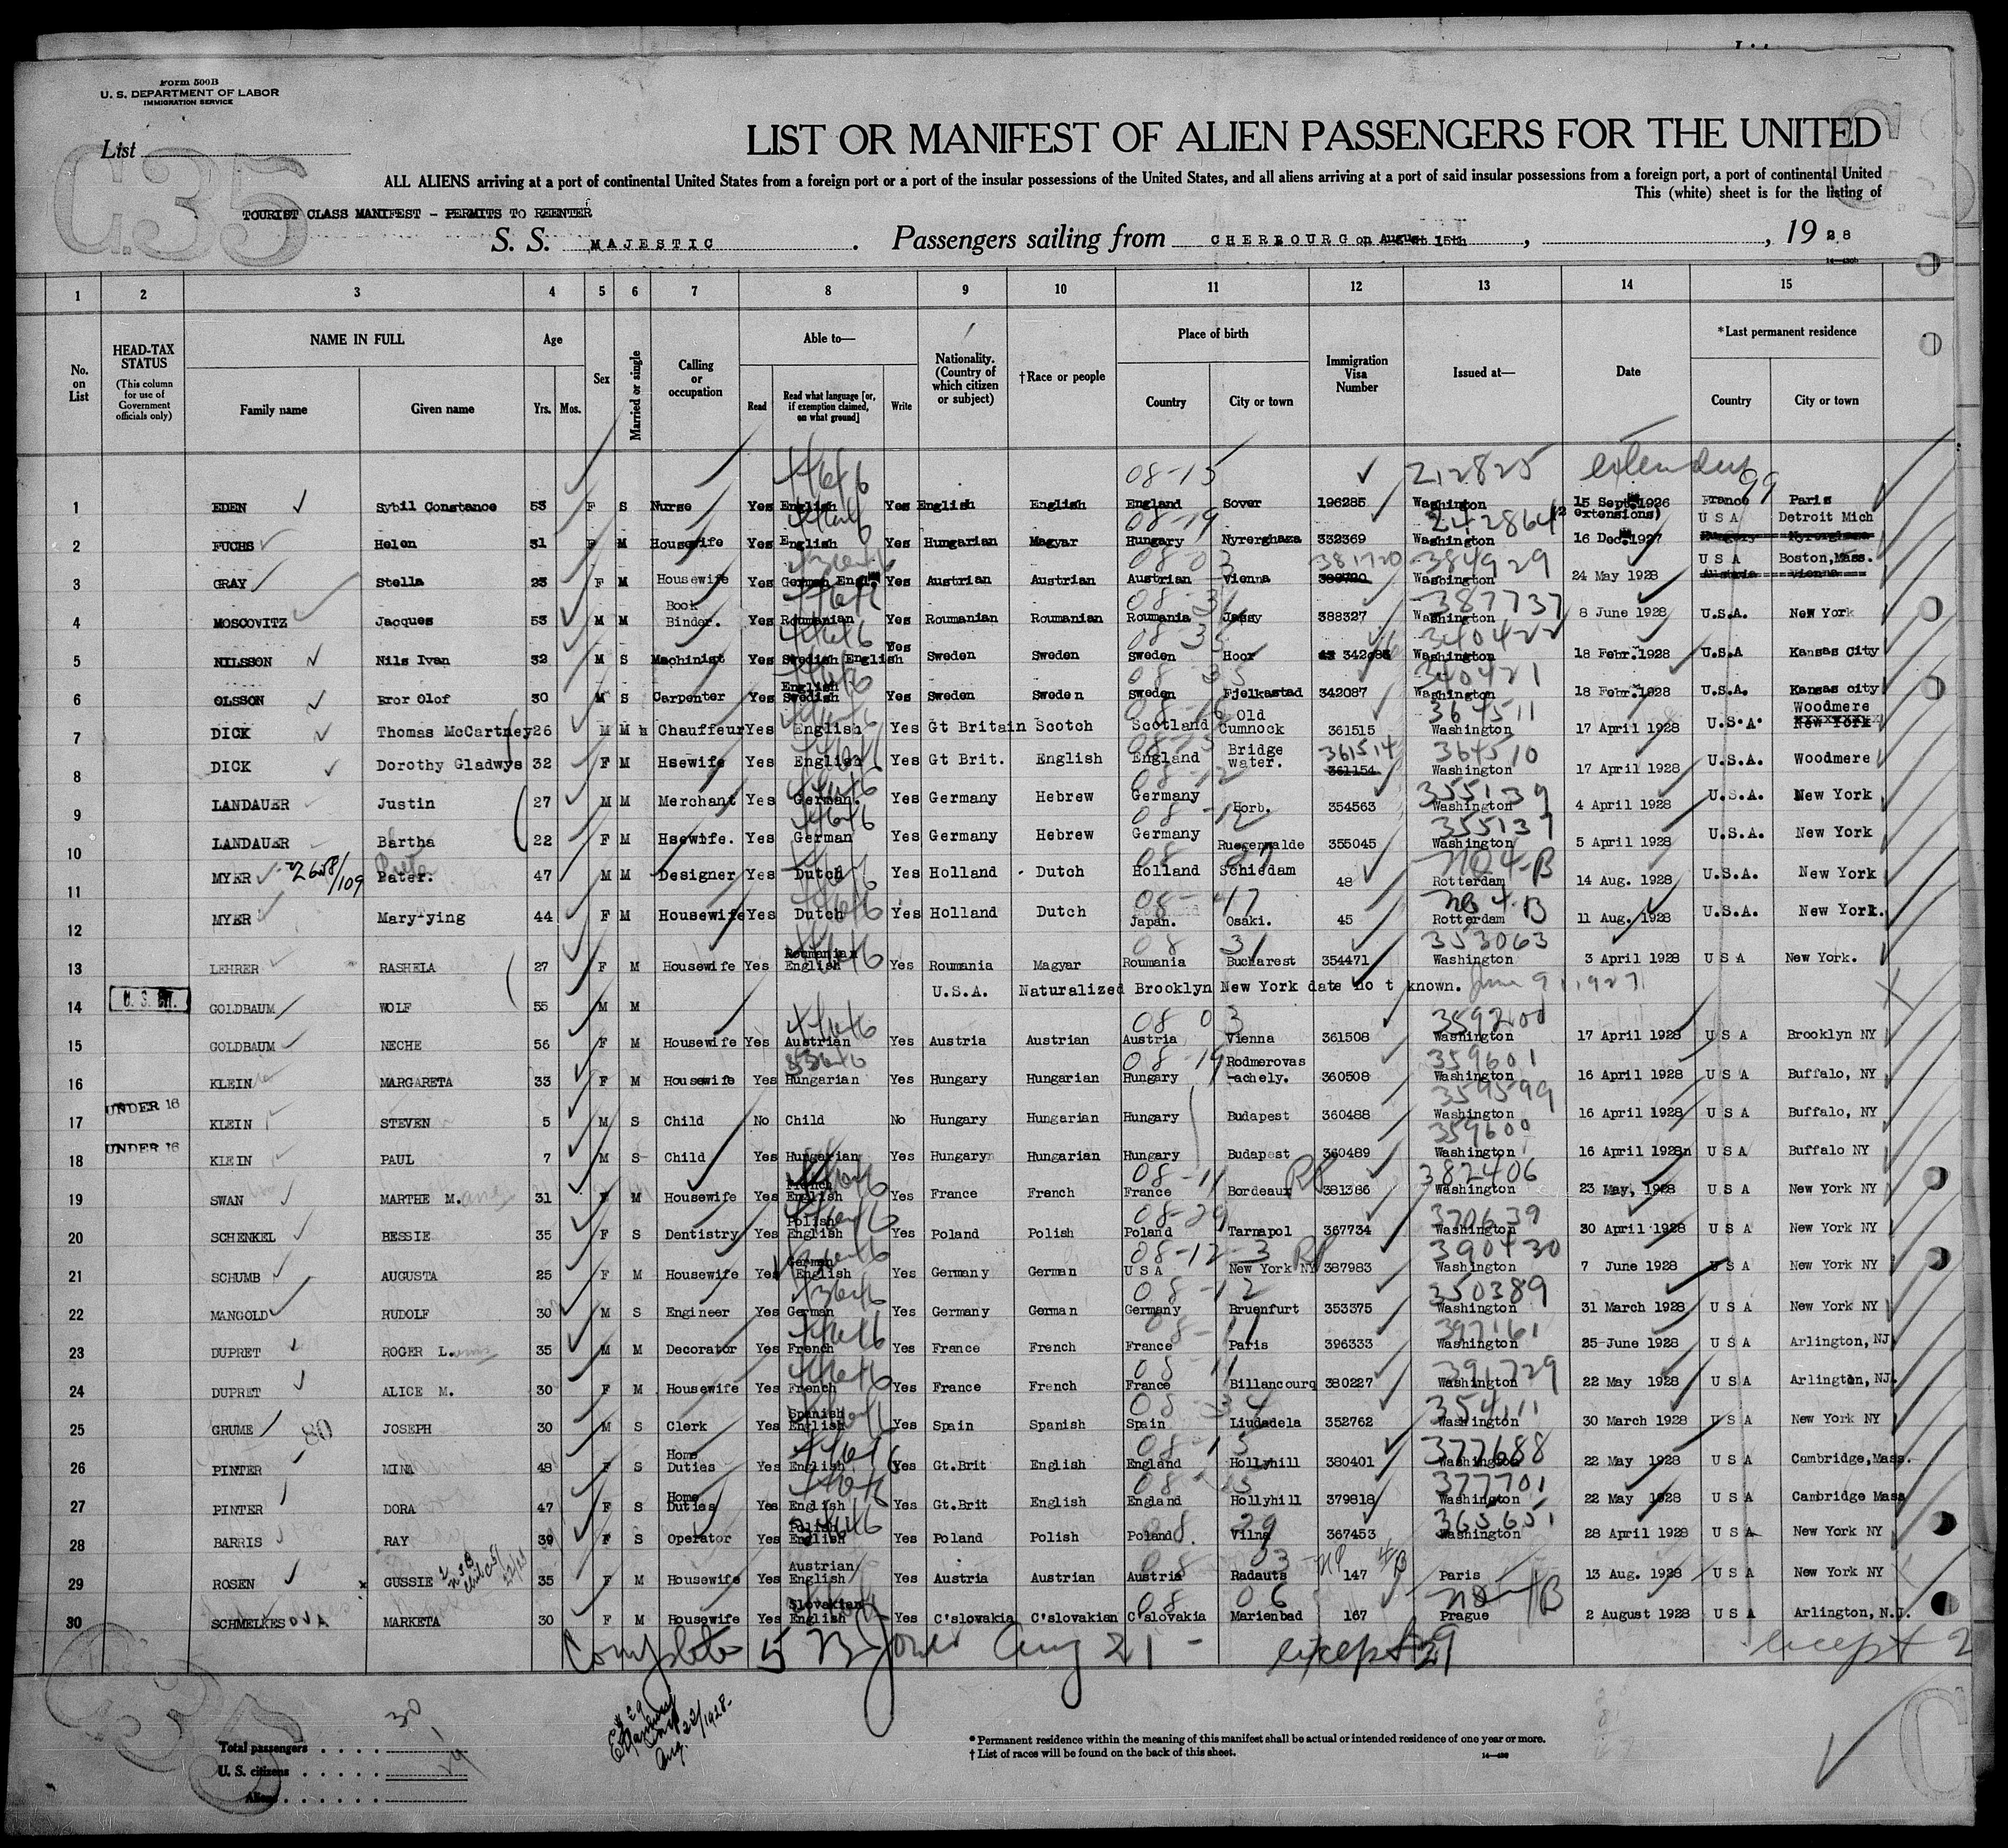 Form 500B
U. S. DEPARTMENT OF LABOR
IMMIGRATION SERVICE
List
C.35
LIST OR MANIFEST OF ALIEN PASSENGERS FOR THE UNITED
ALL ALIENS arriving at a port of continental United States from a foreign port or a port of the insular possessions of the United States, and all aliens arriving at a port of said insular possessions from a foreign port, a port of continental United
This (white) sheet is for the listing of
TOURIST CLASS MANIFEST - PERMITS TO REENTER
S. S. MAJESTIC. Passengers sailing from CHERBOURG on August 15th, , 1928
1 2 3 4 5 6 7 8 9 10 11 12 13 14 15
No. on List
HEAD-TAX STATUS (This column for use of Government officials only)
NAME IN FULL Family name Given name
Age Yrs. Mos.
Sex
Married or single
Calling or occupation
Able to— Read Read what language [or, if exemption claimed, on what ground] Write
Nationality. (Country of which citizen or subject)
†Race or people
Place of birth Country City or town
Immigration Visa Number
Issued at—
Date
*Last permanent residence Country City or town
08-15 212825 extended 99
1 EDEN Sybil Constance 53 F S Nurse Yes English Yes English English England Sover 196285 Washington 15 Sept. 1926 (2 extensions) France Paris
08-19 242864 U S A Detroit Mich
2 FUCHS Helen 31 F M Housewife Yes English Yes Hungarian Magyar Hungary Nyrerghaza 332369 Washington 16 Dec. 1927 Hungary Nyrerghaza
08-03 381720 384929 U S A Boston, Mass.
3 GRAY Stella 23 F M Housewife Yes German Engl Yes Austrian Austrian Austrian Vienna 380720 Washington 24 May 1928 Austria Vienna
08-31 387737
4 MOSCOVITZ Jacques 53 M M Book Binder. Yes Roumanian Yes Roumanian Roumanian Roumania Jassy 388327 Washington 8 June 1928 U.S.A. New York
08-35 340422
5 NILSSON Nils Ivan 32 M S Machinist Yes Swedish English Yes Sweden Sweden Sweden Hoor 342086 Washington 18 Febr. 1928 U.S.A Kansas City
08-35 340421
6 OLSSON Eror Olof 30 M S Carpenter Yes English Swedish Yes Sweden Sweden Sweden Fjelkastad 342087 Washington 18 Febr. 1928 U.S.A. Kansas city
364511
7 DICK Thomas McCartney 26 M M Chauffeur Yes English Yes Gt Britain Scotch Scotland Old Cumnock 361515 Washington 17 April 1928 U.S.A. Woodmere New York
08-15 361514 364510
8 DICK Dorothy Gladwys 32 F M Hsewife Yes English Yes Gt Brit. English England Bridge water. 361154 Washington 17 April 1928 U.S.A. Woodmere
08-12 355139
9 LANDAUER Justin 27 M M Merchant Yes German. Yes Germany Hebrew Germany Horb. 354563 Washington 4 April 1928 U.S.A. New York
08-12 355137
10 LANDAUER Bertha 22 F M Hsewife. Yes German Yes Germany Hebrew Germany Ruegenwalde 355045 Washington 5 April 1928 U.S.A. New York
11 MYER Peter. 47 M M Designer Yes Dutch Yes Holland Dutch Holland Schiedam 48 Rotterdam 14 Aug. 1928 U.S.A. New York
08-47
12 MYER MaryTying 44 F M Housewife Yes Dutch Yes Holland Dutch Japan. Osaki. 45 Rotterdam 11 Aug. 1928 U.S.A. New York.
08 31 353063
13 LEHRER RASHELA 27 F M Housewife Yes Roumanian English Yes Roumania Magyar Roumania Bucharest 354471 Washington 3 April 1928 U S A New York.
14 GOLDBAUM WOLF 55 M M U.S.A. Naturalized Brooklyn New York date no t known. June 9, 1927
08 03 359200
15 GOLDBAUM NECHE 56 F M Housewife Yes Austrian Yes Austria Austrian Austria Vienna 361508 Washington 17 April 1928 U S A Brooklyn NY
08-19 359601
16 KLEIN MARGARETA 33 F M Housewife Yes Hungarian Yes Hungary Hungarian Hungary Rodmerovas -achely. 360508 Washington 16 April 1928 U S A Buffalo, NY
359599
17 UNDER 16 KLEIN STEVEN 5 M S Child No Child No Hungary Hungarian Hungary Budapest 360488 Washington 16 April 1928 U S A Buffalo, NY
359600
18 UNDER 16 KLEIN PAUL 7 M S Child Yes Hungarian Yes Hungary Hungarian Hungary Budapest 360489 Washington 16 April 1928 U S A Buffalo NY
08-11 382406
19 SWAN MARTHE M. 31 F M Housewife Yes French English Yes France French France Bordeaux 381386 Washington 23 May, 1928 U S A New York NY
08-29 370639
20 SCHENKEL BESSIE 35 F S Dentistry Yes Polish English Yes Poland Polish Poland Tarnapol 367734 Washington 30 April 1928 U S A New York NY
08-12-3 390430
21 SCHUMB AUGUSTA 25 F M Housewife Yes German English Yes Germany German U S A New York NY 387983 Washington 7 June 1928 U S A New York NY
08-12 350389
22 MANGOLD RUDOLF 30 M S Engineer Yes German Yes Germany German Germany Bruenfurt 353375 Washington 31 March 1928 U S A New York NY
08-11 397161
23 DUPRET ROGER L. 35 M M Decorator Yes French Yes France French France Paris 396333 Washington 25 June 1928 U S A Arlington, NJ
08 11 391729
24 DUPRET ALICE M. 30 F M Housewife Yes French Yes France French France Billancourq 380227 Washington 22 May 1928 U S A Arlington, NJ.
08 34 354111
25 GRUME 80 JOSEPH 30 M S Clerk Yes Spanish English Yes Spain Spanish Spain Liudadela 352762 Washington 30 March 1928 U S A New York NY
08-15 377688
26 PINTER MINA 48 F S Home Duties Yes English Yes Gt.Brit English England Hollyhill 380401 Washington 22 May 1928 U S A Cambridge, Mass.
08 15 377701
27 PINTER DORA 47 F S Home Duties Yes English Yes Gt.Brit English England Hollyhill 379818 Washington 22 May 1928 U S A Cambridge Mass
08 29 365651
28 BARRIS RAY 39 F S Operator Yes Polish English Yes Poland Polish Poland Vilna 367453 Washington 28 April 1928 U S A New York NY
08 03
29 ROSEN x GUSSIE 35 F M Housewife Yes Austrian English Yes Austria Austrian Austria Radauts 147 Paris 13 Aug. 1928 U S A New York NY
08 06
30 SCHMELKESOVA MARKETA 30 F M Housewife Yes Slovakian English Yes C'slovakia C'slovakian C'slovakia Marienbad 167 Prague 2 August 1928 U S A Arlington, N.J.
Complete Aug 21 - except 29 except 2
Aug. 22/1928.
*Permanent residence within the meaning of this manifest shall be actual or intended residence of one year or more.
†List of races will be found on the back of this sheet.
Total passengers . . . . 30
U. S. citizens . . . . . 1
Aliens . . . . . . 29